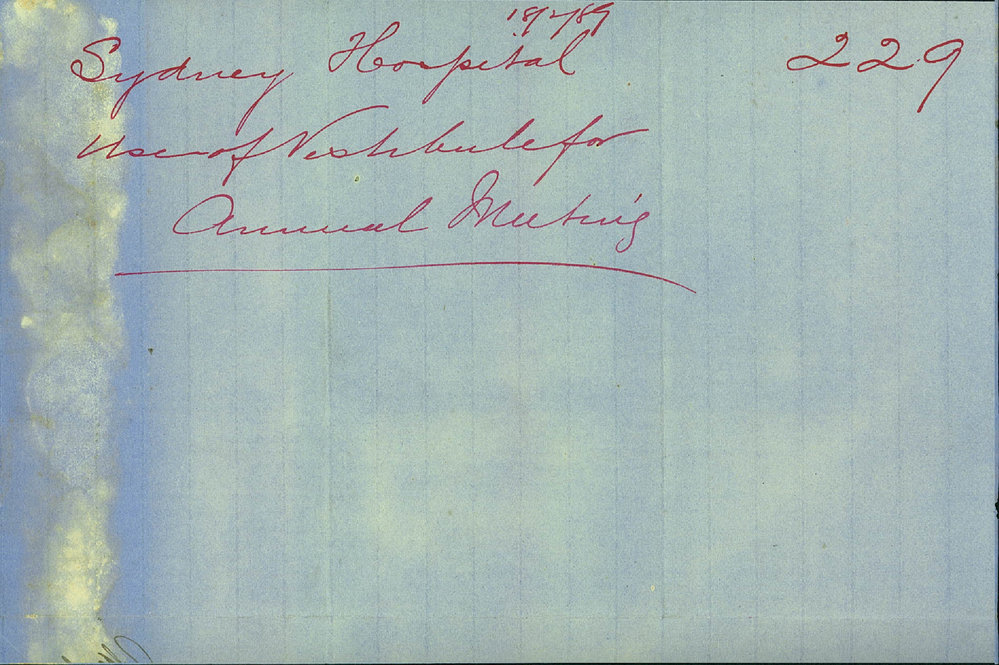 18/2/89
Sydney Hospital 229
Use of Vestibule for
Annual Meeting